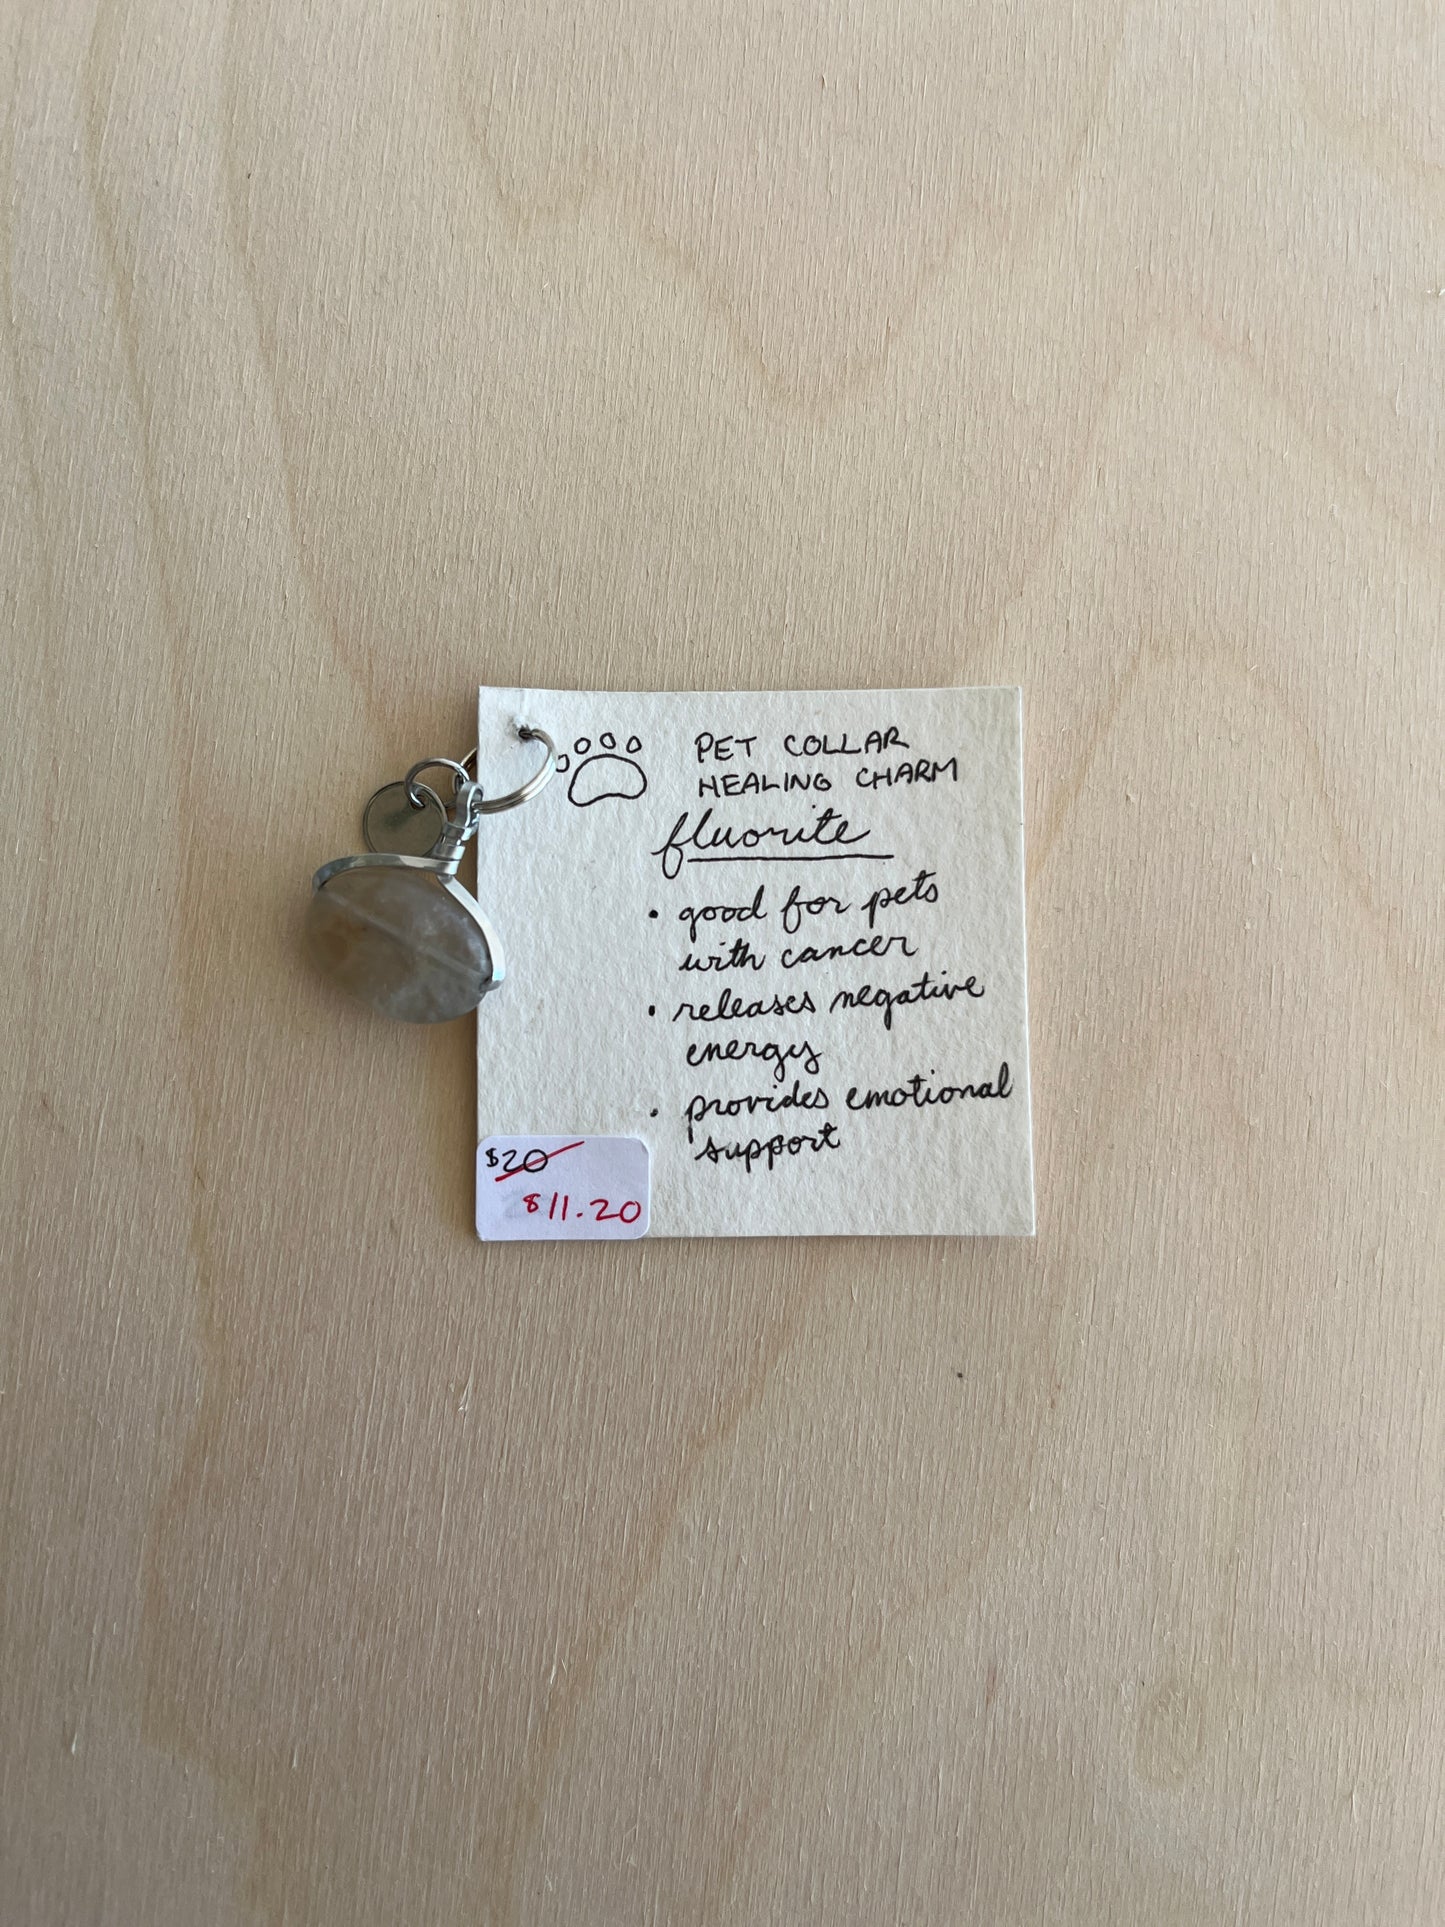 PET COLLAR
HEALING CHARM
fluorite
• good for pets
with cancer
• releases negative
energy
• provides emotional
support
$20
$11.20